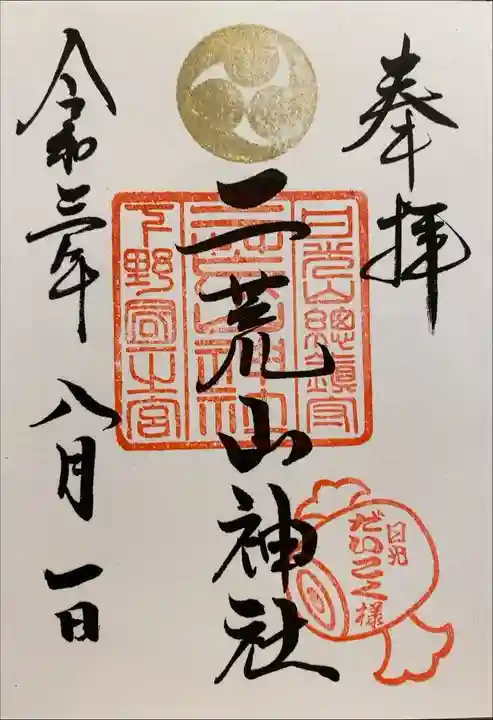 奉拝
日光山總鎮守
二荒山神社
二荒山神社
下野國一之宮
日光
だいこく様
令和三年 八月 一日